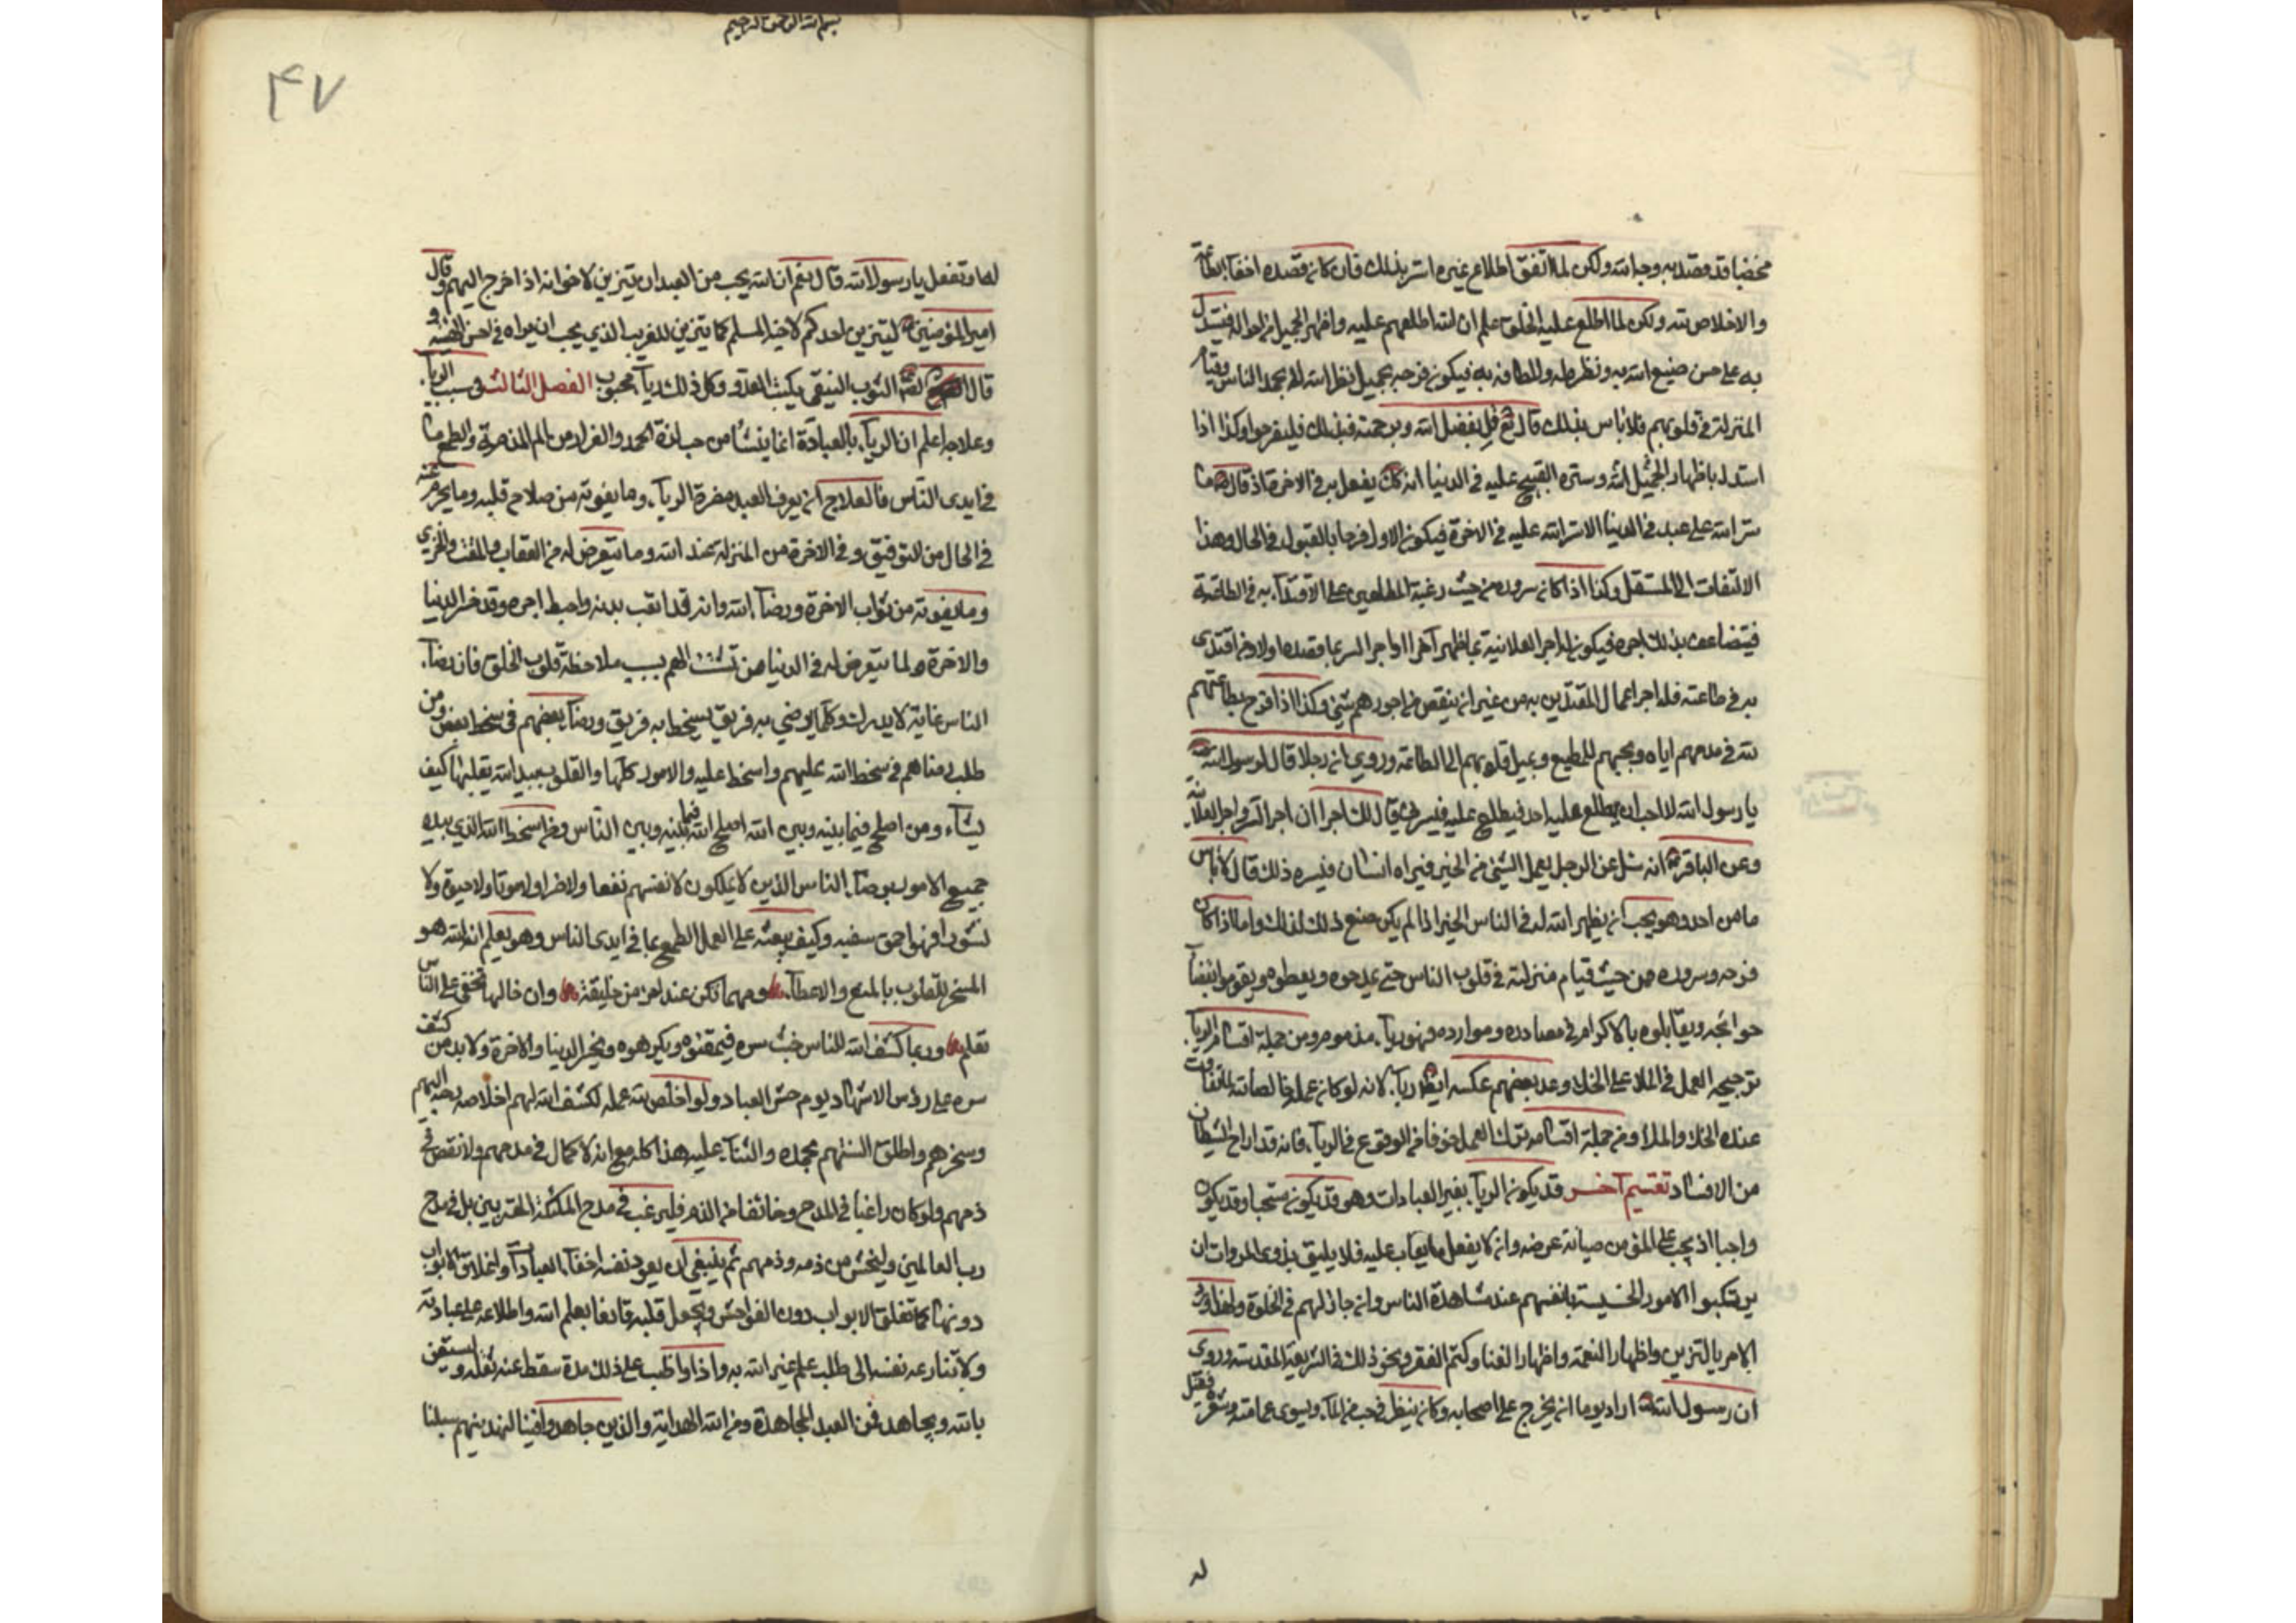 محضا قد قصد به وجه الله ولكن لما اتفق اطلاع غيره استر بذلك فان كان قصده اخفاء الطاعة
والاخلاص لله ولكن لما اطلع عليه الخلق علم ان الله اطلعهم عليه واظهر الجميل من احواله فيستدل
به على حسن صنيع الله به ونظره له والطافه به فيكون فرحه بجميل نظر الله له لا بحمد الناس وقيام
المنزلة في قلوبهم فلا باس بذلك قال تع قل بفضل الله وبرحمته فبذلك فليفرحوا وكذا اذا
استدل باظهار الجميل لله وستره القبيح عليه في الدنيا انه كك يفعل به في الاخرة اذ قال ص ما
ستر الله على عبد في الدنيا الا ستر الله عليه في الاخرة فيكون الاول فرحا بالقبول في الحال وهذا
الالتفات الى المستقبل وكذا اذا كان سروره من حيث رغبة المطلعين على الاقتداء به في الطاعة
فيتضاعف بذلك اجره فيكون له اجر العلانية بما اظهر آخرا واجر السر بما قصده اولا ومن اقتدى
به في طاعته فله اجر اعمال المقتدين به من غير ان ينقص من اجورهم شيئ وكذا اذا فرح بطاعتهم
لله في مدحهم اياه ومحبتهم للمطيع وبميل قلوبهم الى الطاعة وروي ان رجلا قال لرسول الله ص
يا رسول الله لا احب ان يطلع عليه احد فيطلع عليه فيسرني قال لك اجران اجر السر واجر العلانية
وعن الباقر ع انه سئل عن الرجل يعمل الشيئ من الخير فيراه انسان فيسره ذلك قال لا باس
ما من احد وهو يحب ان يظهر الله له في الناس الخير اذا لم يكن صنع ذلك لذلك واما اذا كان
فرحه وسروره من حيث قيام منزلته في قلوب الناس حتى يمدحوه ويعطوه ويقوموا بقضاء
حوائجه ويقابلوه بالاكرام في مصادره وموارده فهو رياء مذموم ومن جملة اقسام الرياء
ترجيح العمل في الملا على الخلا وعد بعضهم عكسه ايض رياء لانه لو كان عمله خالصا لله لما تفاوت
عنده الخلا والملا ومن جملة اقسامه ترك العمل خوفا من الوقوع في الرياء فانه قد اراح الشيطان
من الافساد تقسيم آخر قد يكون الرياء بغير العبادات وهو قد يكون مستحبا وقد يكون
واجبا اذ يجب على المؤمن صيانة عرضه وان لا يفعل ما يعاب عليه فلا يليق بذوي المروات ان
يرتكبوا الامور الخسيسة بانفسهم عند مشاهدة الناس وان جاز لهم في الخلوة ولهذا ورد
الامر بالتزين واظهار النعمة واظهار الغنا وكتم الفقر ونحو ذلك في الشريعة المقدسة وروي
ان رسول الله ص اراد يوما ان يخرج على اصحابه وكان ينظر في حب من الماء ويسوى عمامته وشعره فقيل
له
بسم الله الرحمن الرحيم
۴۷
له او تفعل يا رسول الله قال نعم ان الله يحب من العبد ان يتزين لاخوانه اذا خرج اليهم وقال
امير المؤمنين ع ليتزين احدكم لاخيه المسلم كما يتزين للغريب الذي يحب ان يراه في احسن الهيئة و
قال الصادق ع الثوب النقي يكبت العدو وكل ذلك رياء محبوب الفصل الثالث في سبب الرياء
وعلاجه اعلم ان الرياء بالعبادة انما ينشأ من حب لذة الحمد والفرار من الم المذمة والطمع بما
في ايدى الناس فالعلاج ان يعرف العبد مضرة الرياء وما يفوته من صلاح قلبه وما يحرم عنه
في الحال من التوفيق وفي الاخرة من المنزلة عند الله وما يتعرض له من العقاب والمقت والخزى
وما يفوته من ثواب الاخرة ورضاء الله وانه قد اتعب بدنه واحبط اجره وقد خسر الدنيا
والاخرة ولما يتعرض له في الدنيا من تشتت الهم بسبب ملاحظة قلوب الخلق فان رضاء
الناس غاية لا يدرك وكلما يرضي به فريق يسخط به فريق ورضاء بعضهم في سخط بعض ومن
طلب رضاهم في سخط الله عليهم واسخط عليه والامور كلها والقلوب بيد الله يقلبها كيف
يشاء ومن اصلح فيما بينه وبين الله اصلح الله فيما بينه وبين الناس ومن اسخط الله الذي بيده
جميع الامور برضاء الناس الذين لا يملكون لانفسهم نفعا ولا ضرا ولا موتا ولا حيوة ولا
نشورا فهو احمق سفيه وكيف يبعثه على العمل الطمع بما في ايدى الناس وهو يعلم ان الله هو
المسخر للقلوب بالمنع والاعطاء ومهما تكن عند امرء من خليقة وان خالها تخفى على الناس
تعلم وربما كشف الله للناس خبث سره فيمقتوه ويكرهوه ويخسر الدنيا والاخرة ولا بد من كشف
سره على رؤس الاشهاد يوم حشر العباد ولو اخلص لله عمله لكشف الله لهم اخلاصه وحببه اليهم
وسخرهم واطلق السنتهم بحمده والثناء عليه هذا كله مع انه لا كمال في مدحهم ولا نقص في
ذمهم ولو كان راغبا في المدح وخائفا من الذم فليرغب في مدح الملئكة المقربين بل في مدح
رب العالمين وليخش من ذمه وذمهم ثم ينبغي ان يعود نفسه اخفاء العبادات واغلاق الابواب
دونها كما تغلق الابواب دون الفواحش ويجعل قلبه قانعا بعلم الله واطلاعه على عبادته
ولا تنازعه نفسه الى طلب علم غير الله به واذا واظب على ذلك مدة سقط عنه ثقله ويستعين
بالله ويجاهد فمن العبد المجاهدة ومن الله الهداية والذين جاهدوا فينا لنهدينهم سبلنا